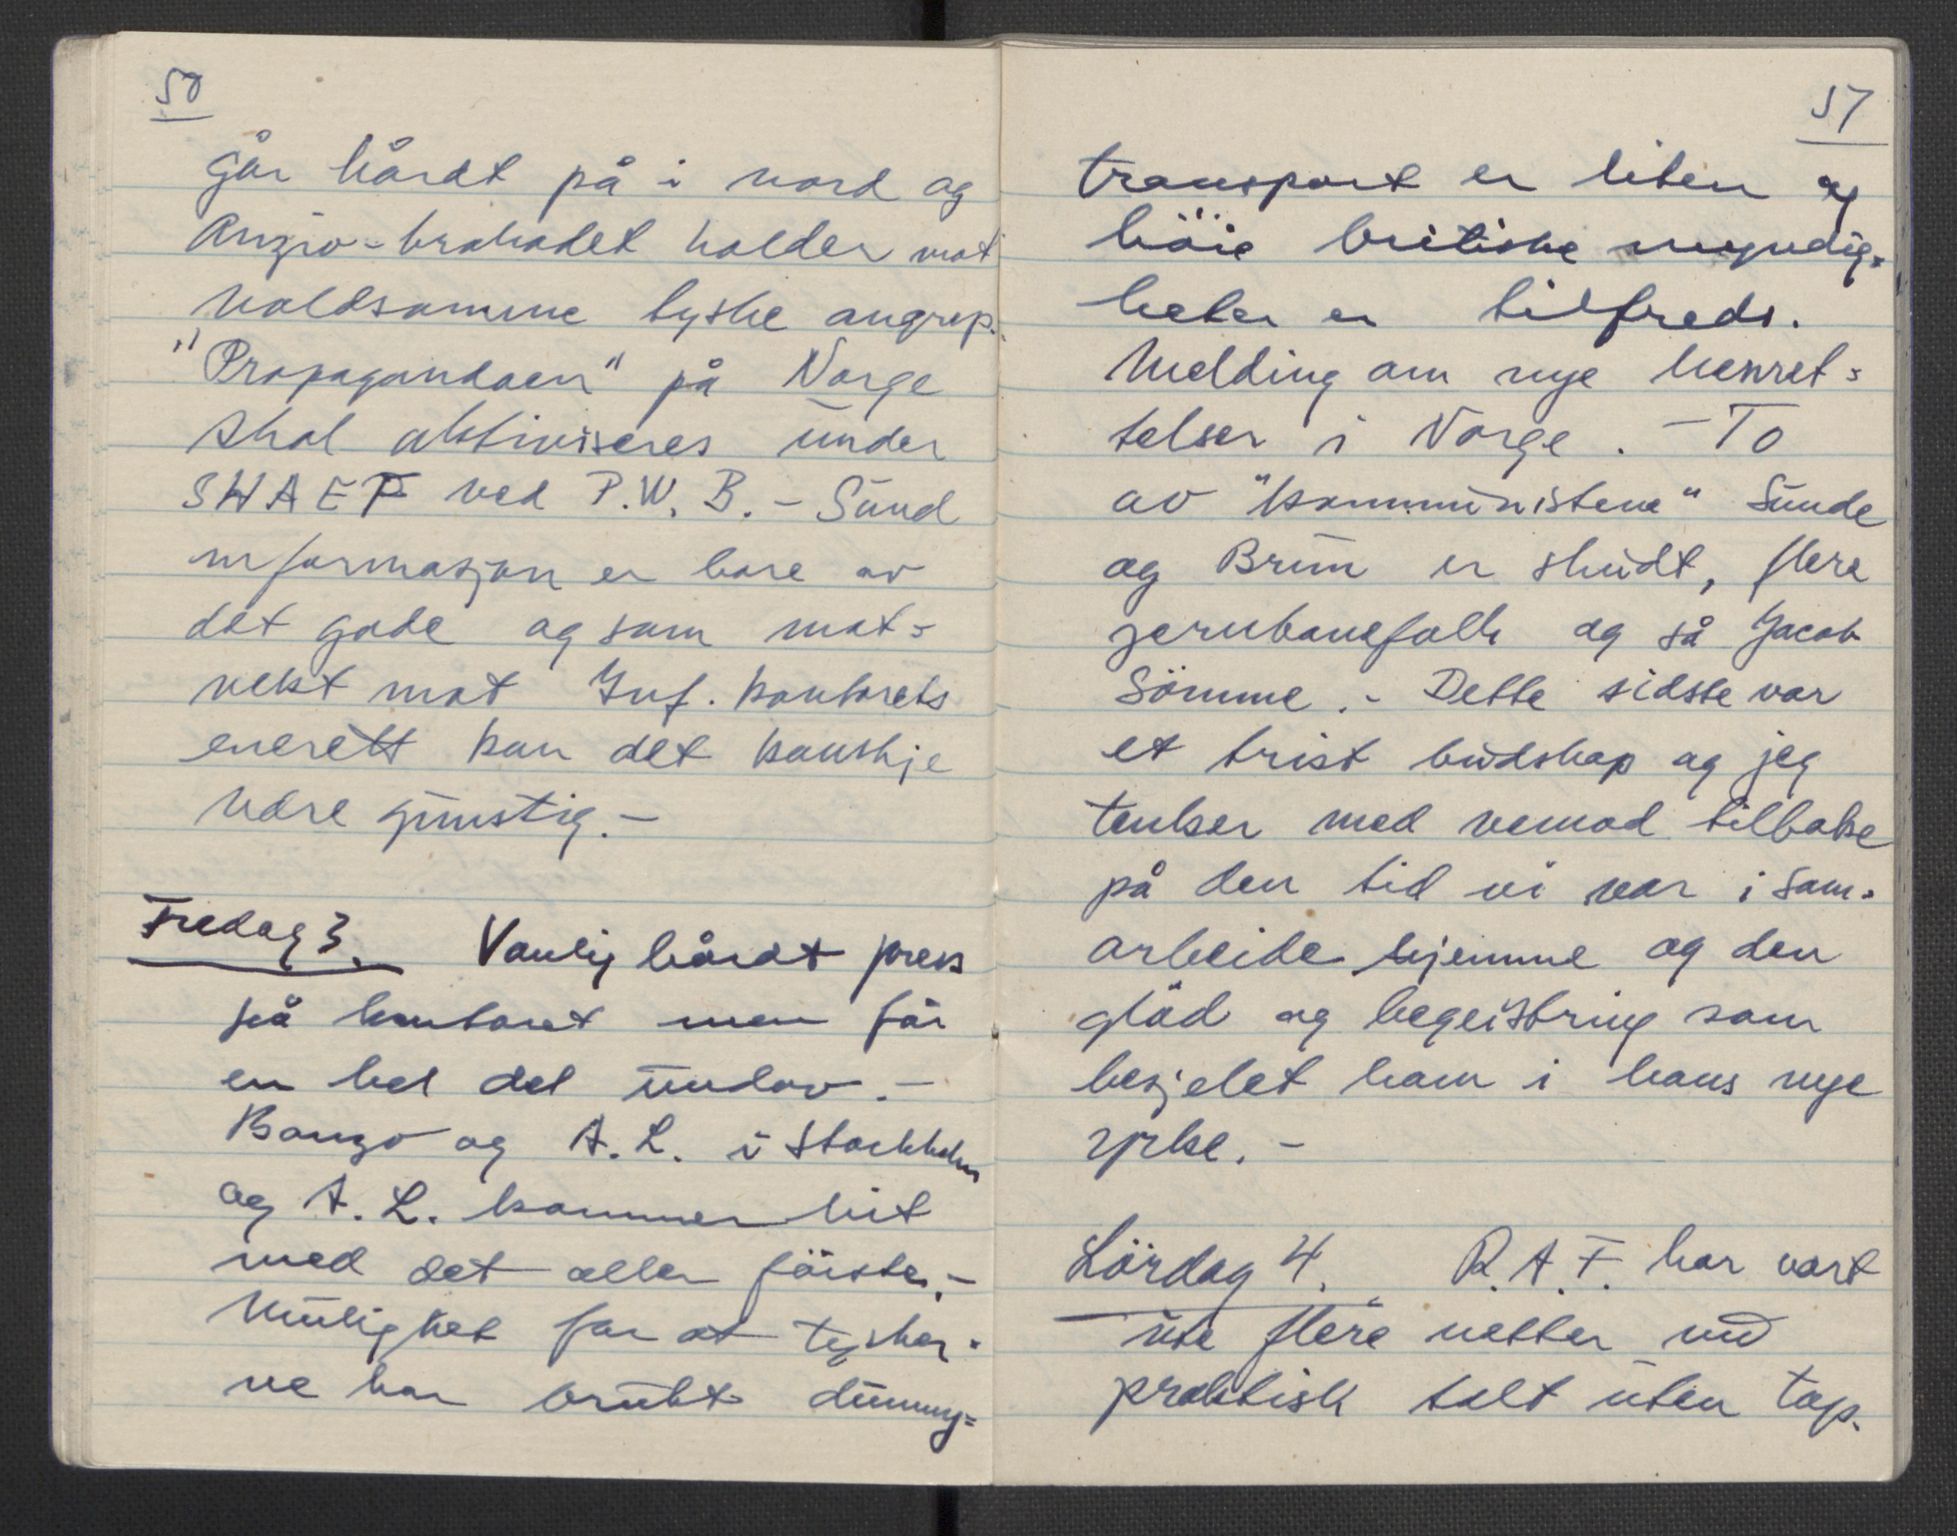 50
går hårdt på i nord og
Anzio-bruhodet holder mot
voldsomme tyske angrep.
"Propagandaen" på Norge
skal aktiviseres under
SHAEF ved P.W.B. - Sund
informasjon er bare av
det gode og som mot=
vekt mot Inf. kontorets
enerett kan det kanskje
være gunstig. -
Fredag 3. Vanlig hårdt press
på kontoret men får
en hel del undav. -
Bonzo og A.L. i Stockholm
og A.L. kommer hit
med det aller første. -
Mulighet for at tysker=
ne har brukt dummy=
51
transport er liten og
höie britiske myndig=
heter er tilfreds.
Melding om nye henret=
telser i Norge. - To
av "kommunistene" Sunde
og Brun er skudt, flere
jernbanefolk og så Jacob
Sömme. - Dette sidste var
et trist budskap og jeg
tenker med vemod tilbake
på den tid vi var i sam=
arbeide hjemme og den
glöd og begeistring som
besjelet ham i hans nye
yrke. -
Lördag 4. R.A.F. har vært
ute flere netter med
praktisk talt uten tap.